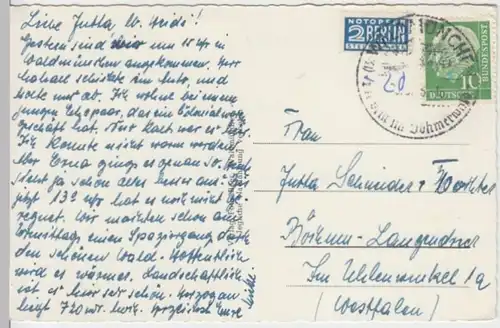 Liebe Jutta u. Heidi!
Gestern sind wir um 15 Uhr in
Waldmünchen angekommen. Herr
schickte ein Auto, und
holte uns ab. Ich wohne bei einem
jungen Ehepaar, das ein Kolonialwaren
geschäft hat. Nur kalt war es hier.
Ich konnte nicht warm werden.
Aber Erna gings es genau so. Heut
sieht ja schon alles besser aus. Bis
jetzt 13 Uhr hat es noch nicht ge
regnet. Wir machten schon am
Vormittags einen Spaziergang durch
den schönen Wald. Hoffentlich
wird es wärmer. Landschaftlich
ist es hier sehr schön.
liegt 720 m. hoch. Herzlichst Eure
NOTOPFER
2 BERLIN
STEUERMARKE
DEUTSCHE BUNDESPOST
10
im Böhmerwald
Frau
Jutta Schneider u. Tochter
Bochum-Langendreer
Im Uhlenwinkel 1a
(Westfalen)